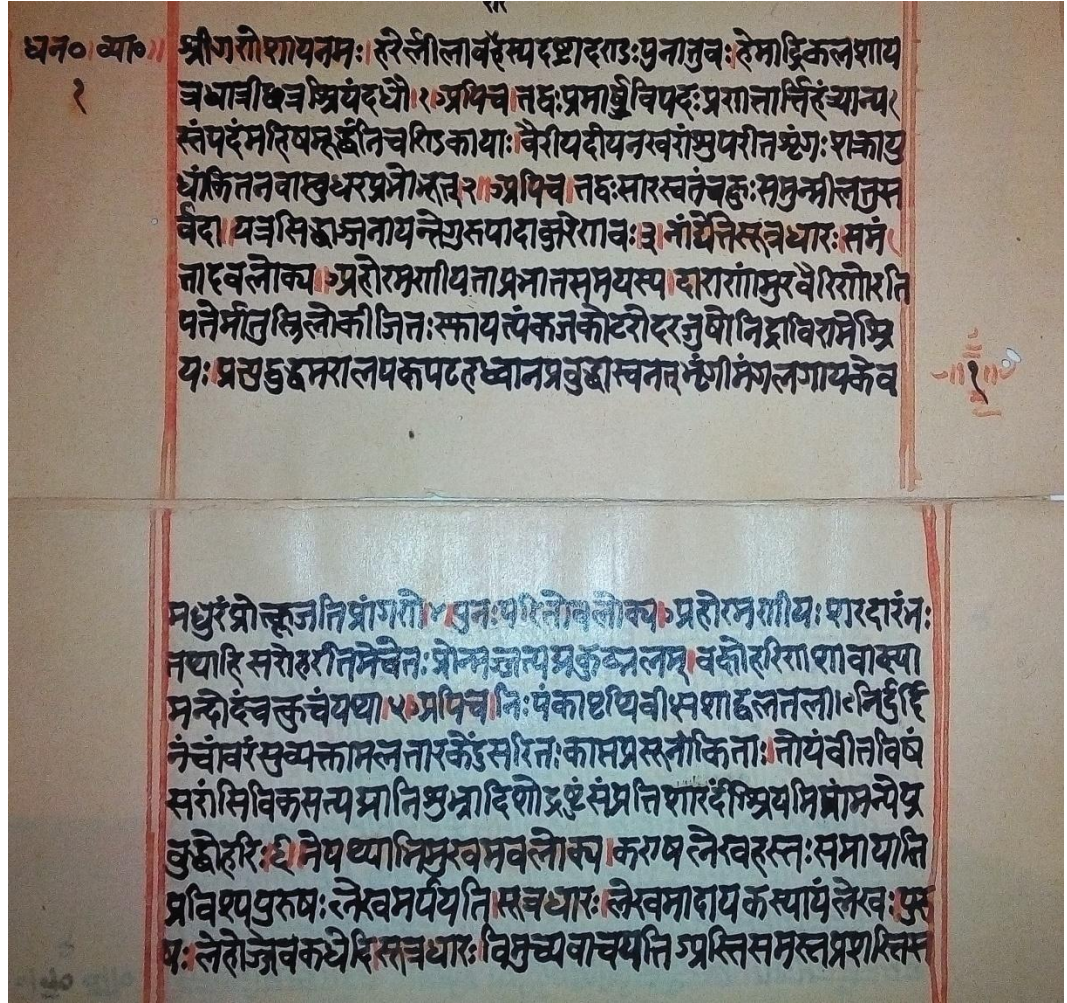 धन० व्या० ॥ श्रीगणेशायनमः । हरेर्लीलावराहस्य दंष्ट्रादण्डः पुनातु वः । हेमाद्रिकलशा यत्र
१ धात्री छत्रश्रियं दधौ १ अपि च । तद्वः प्रमार्ष्टु विपदः प्रणतार्त्तिहंत्र्या न्य
स्तं पदं महिषमूर्द्धनि चण्डिकायाः । वैरी यदीयनखरांशुपरीतशृंगः शक्रायु
धांकितनवाम्बुधरप्रभोभूत् २ ॥ अपि च । तद्वः सारस्वतं चक्षुः समुन्मीलतु स
र्वदा । यत्र सिद्धाञ्जनायन्ते गुरुपादाब्जरेणवः ३ । नांद्यंते सूत्रधारः । समं
तादवलोक्य । अहो रमणीयता प्रभातसमयस्य । दाराणां मुरवैरिणो रति
पतेर्मातुस्त्रिलोकीजितः स्फायत्पंकजकोटरोदरजुषो निद्राविरामे श्रि
यः । प्रत्युद्बुद्धमरालपक्षपटहध्वानप्रबुद्धा स्वनत् भृंगी मंगलगायकेव १
मधुरं प्रोत्कूजति प्रांगणे ४ पुनः परितोवलोक्य । अहो रमणीयः शरदारंभः
तथाहि सरोरुहरीतमेचेतः प्रोन्मज्जत्पद्मकुड्मलम् । वक्षो हरिणशावाक्ष्या
मन्दोदंचत्कुचं यथा ५ अपि च । निःपंका पृथिवी सशाद्वलतला । निर्दुर्दि
नं चांबरं सुव्यक्तामलतारकेंदु सरितः काशप्रसूनांकिताः । तोयं वीतविषं
सरांसि विकसत्पद्मानि शुभ्रा दिशो द्रष्टुं संप्रति शारदीं श्रियमिमां मन्ये प्र
बुद्धो हरिः ६ । नेपथ्याभिमुखमवलोक्य । क एष लेखहस्तः समायाति
प्रविश्य पुरुषः लेखमर्पयति । सूत्रधारः । लेखमादाय कस्यायं लेखः । पुरु
षः । सूत्रधारः । विमुच्य वाचयति स्वस्ति समस्तप्रशस्ति